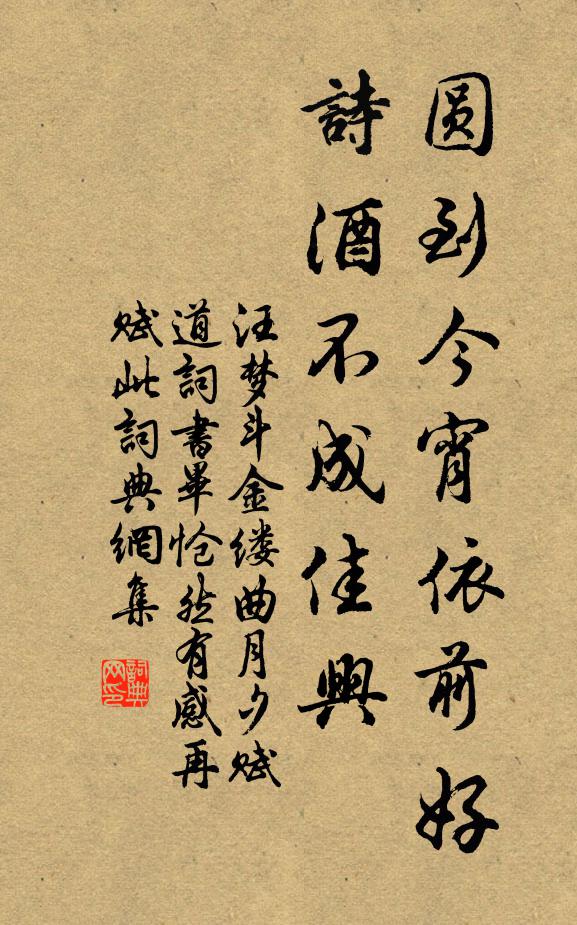 圆到今宵依前好
詩酒不成佳興
汪梦斗金缕曲月夕賦
道詞書畢怆然有感再
賦此詞典網集
詞典网印